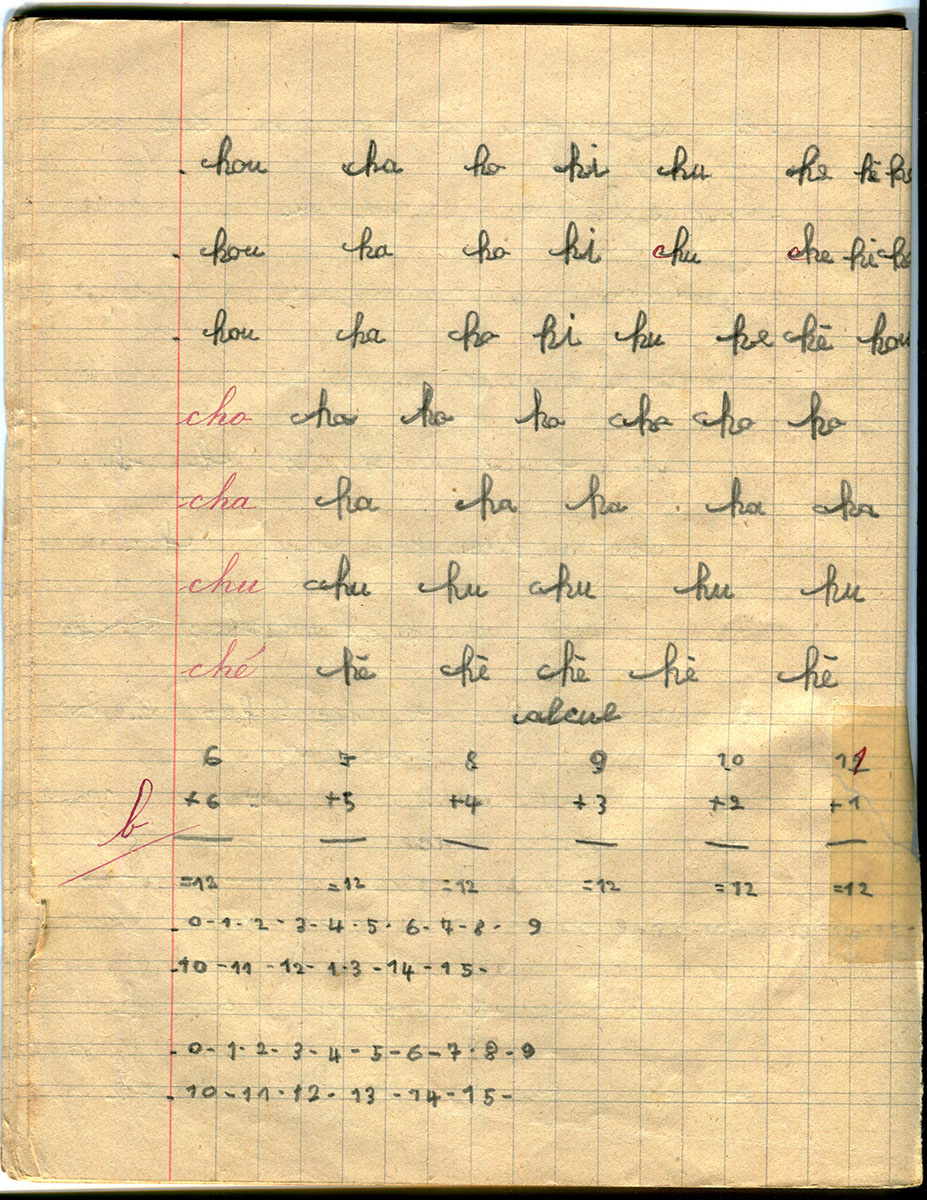 chou cha ho hi chu che hè
hou ha cho hi chu che hi
hou cha cho hi hu he chè hou
cho cha ho ho cha cho ho
cha ha cha ha ha cha
chu chu hu chu hu hu
ché hè chè chè hè hè
calcul
6 7 8 9 10 11
+6 +5 +4 +3 +2 +1
b
=12 =12 =12 =12 =12 =12
0-1-2-3-4-5-6-7-8- 9
10-11-12-13-14-15-
0-1-2-3-4-5-6-7-8-9
10-11-12-13-14-15-